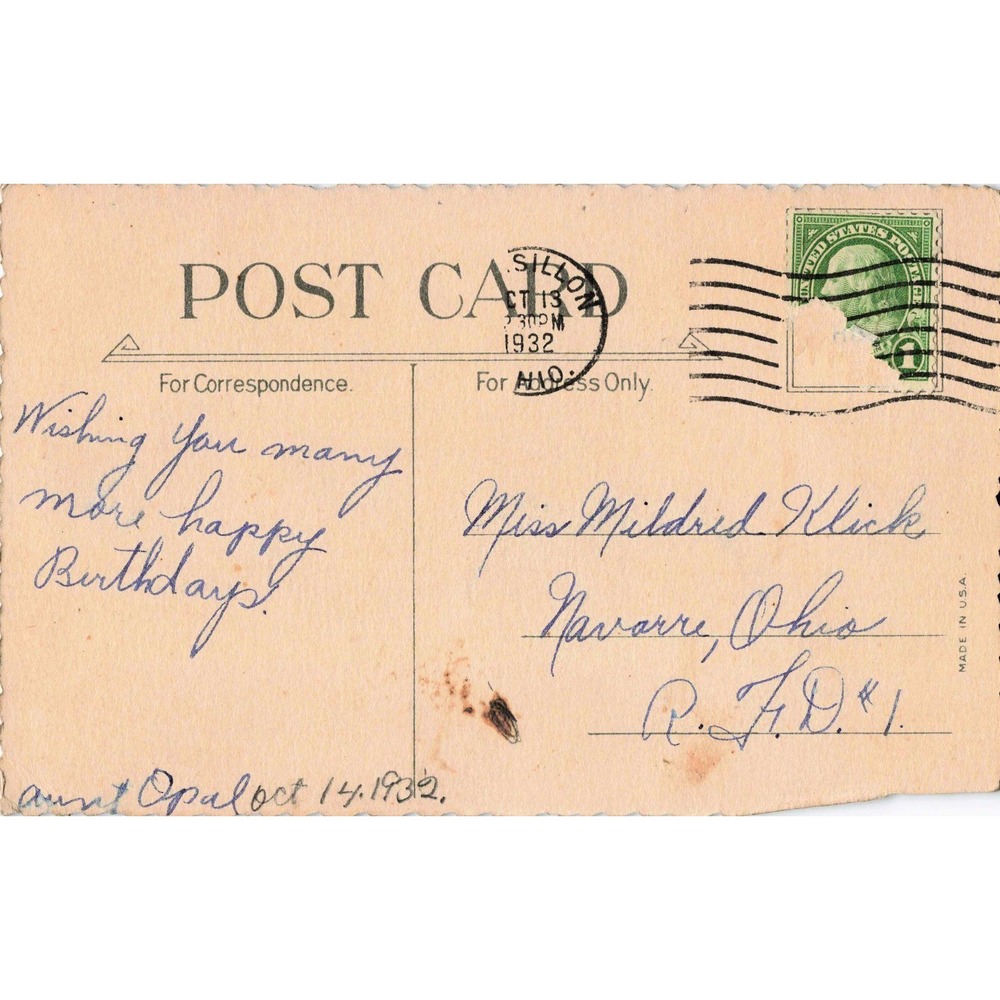 POST CARD
SILLON
OCT 13
2 30 PM
1932
HIO.
UNITED STATES POSTAGE
1
For Correspondence.
For Address Only.
Wishing you many
more happy
Birthdays.
aunt Opal oct 14. 1932.
Miss Mildred Klick
Navarre, Ohio
R. F. D. #1.
MADE IN U.S.A.